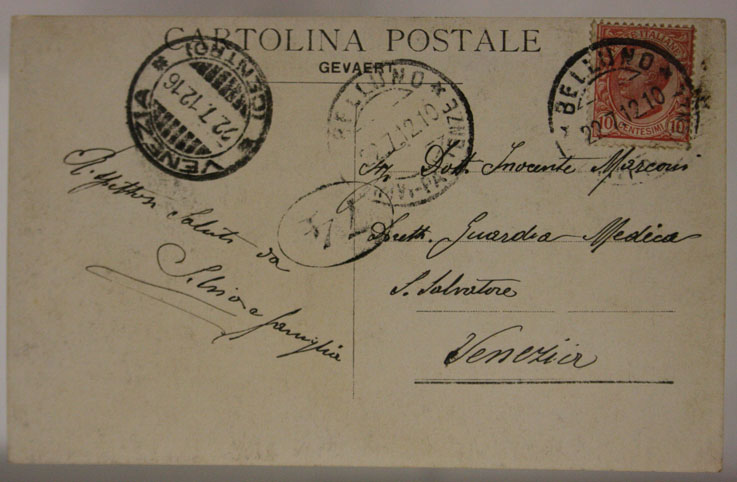 CARTOLINA POSTALE
GEVAERT
VENEZIA (CENTRO)
22.7.12.16
BELLUNO
22.7.12.10
BELLUNO
22.7.12.10
POSTE ITALIANE
CENTESIMI 10
Rispettosi Saluti da
Silvio e famiglia
Dott. Inocente Marconi
Guardia Medica
S. Salvatore
Venezia